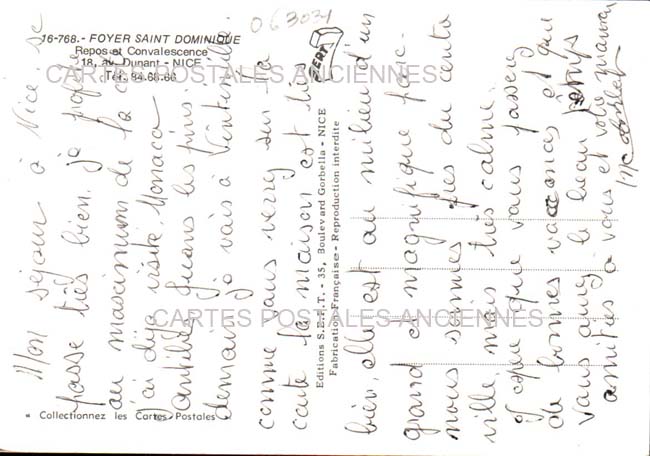 16-768.- FOYER SAINT DOMINIQUE
Repos et Convalescence
18, av. Dunant - NICE
Tél. 84.68.66
063031
CARTES POSTALES ANCIENNES
SEPT
Editions S.E.P.T. - 35, Boulevard Gorbella - NICE
Fabrication Française - Reproduction interdite
CARTES POSTALES ANCIENNES
* Collectionnez les Cartes Postales
Mon séjour à Nice se
passe très bien, je profite
au maximum de la côte
J'ai déja visité Monaco
Antibes Juans les pins
demain je vais à Vintimille.
comme vous verrez sur la
carte la maison est très
bien, elle est au milieu d'un
grand et magnifique parc.
nous sommes près du centre
ville, mais très calme.
J'espère que vous passez
de bonnes vacances et que
vous avez le beau temps
amitiés à vous et votre maman